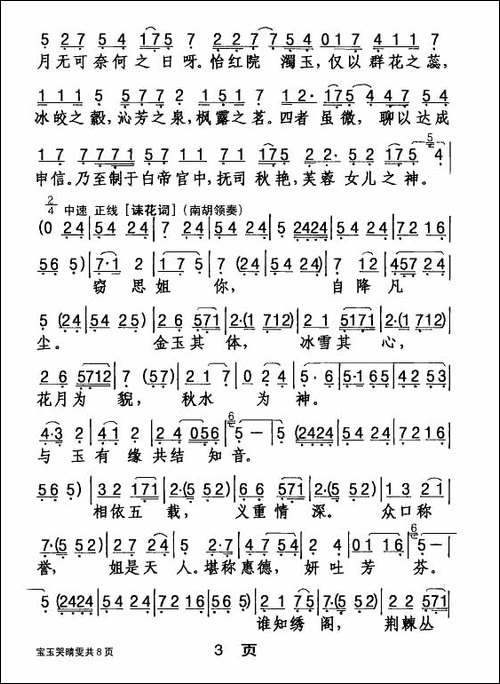 5 2 7 5 4 1 7 5 7 5 2 7 5 4 5 7 4 1 1 7
月无可奈何之日呀。怡红院 濁玉，仅以群花之蕊，
1 1 1 5 5 7 7 2 5 5 5 7 1 2· 1 7 5 4 4 5 7
冰皎之縠，沁芳之泉，枫露之茗。四者 虽微，聊以达成
1 7 7 7 7 1 5 7 1 7 1 1 7 5 5 2 2· 5 2 1 7 5 5 4
申信。乃至制于白帝宫中，抚司秋艳，芙蓉 女儿之神。
2/4 中速 正线 [诔花词]（南胡领奏）
(0 2 4 | 5 4 5 4 | 2 4 2 4 | 5 2 4 2 4 | 5 4 2 4 | 7 2 1 6
5 6 5) | 7·1 2 | 1 5 7 | 7 (2 4 | 5 4 2 4) | 7 1 2 | 4 5 7 2 4
窃 思姐 你， 自降 凡
5 (2 4 | 5 4 2 5) | 2 6 5 7 1 | 2·(1 7 1 2) | 2 1 5 1 7 1 | 2·(5 7 1 2)
尘。 金玉其 体， 冰雪其 心，
2 6 5 7 1 2 | 7 (5 7) | 2 1 7 | 0 2 4 | 5·6 | 5·1 6 5 | 4 2 5 3
花月为 貌， 秋水 为 神。
4·3 2 | 4 5 1 | 2 4 0 5 6 | 6 5 — | 5 (2 4 2 4 | 5 4 2 4 | 7 2 1 6
与 玉有缘共结 知音。
5 6 5) | 3 2 1 7 1 | 2·(5 5 2) | 6 6 5 7 1 | 2·(5 5 2) | 1 3 2 1
相依五 载， 义重情 深。 众口称
7·(5 5 2) | 2 7 2 4 | 5 2·7 | 4 7 5 4 | 2 4 | 0 1 1 6 | 6 5 —
誉， 姐是天 人。堪称惠德，妍吐芳 芬。
5 (2 4 2 4 | 5 4 2 4 | 7 2 1 6 | 5 6 5) | 1 7 5 | 7·(5 5 2) | 2 2 5 7 1
谁知绣 阁， 荆棘丛
宝玉哭晴雯共8页
3 页